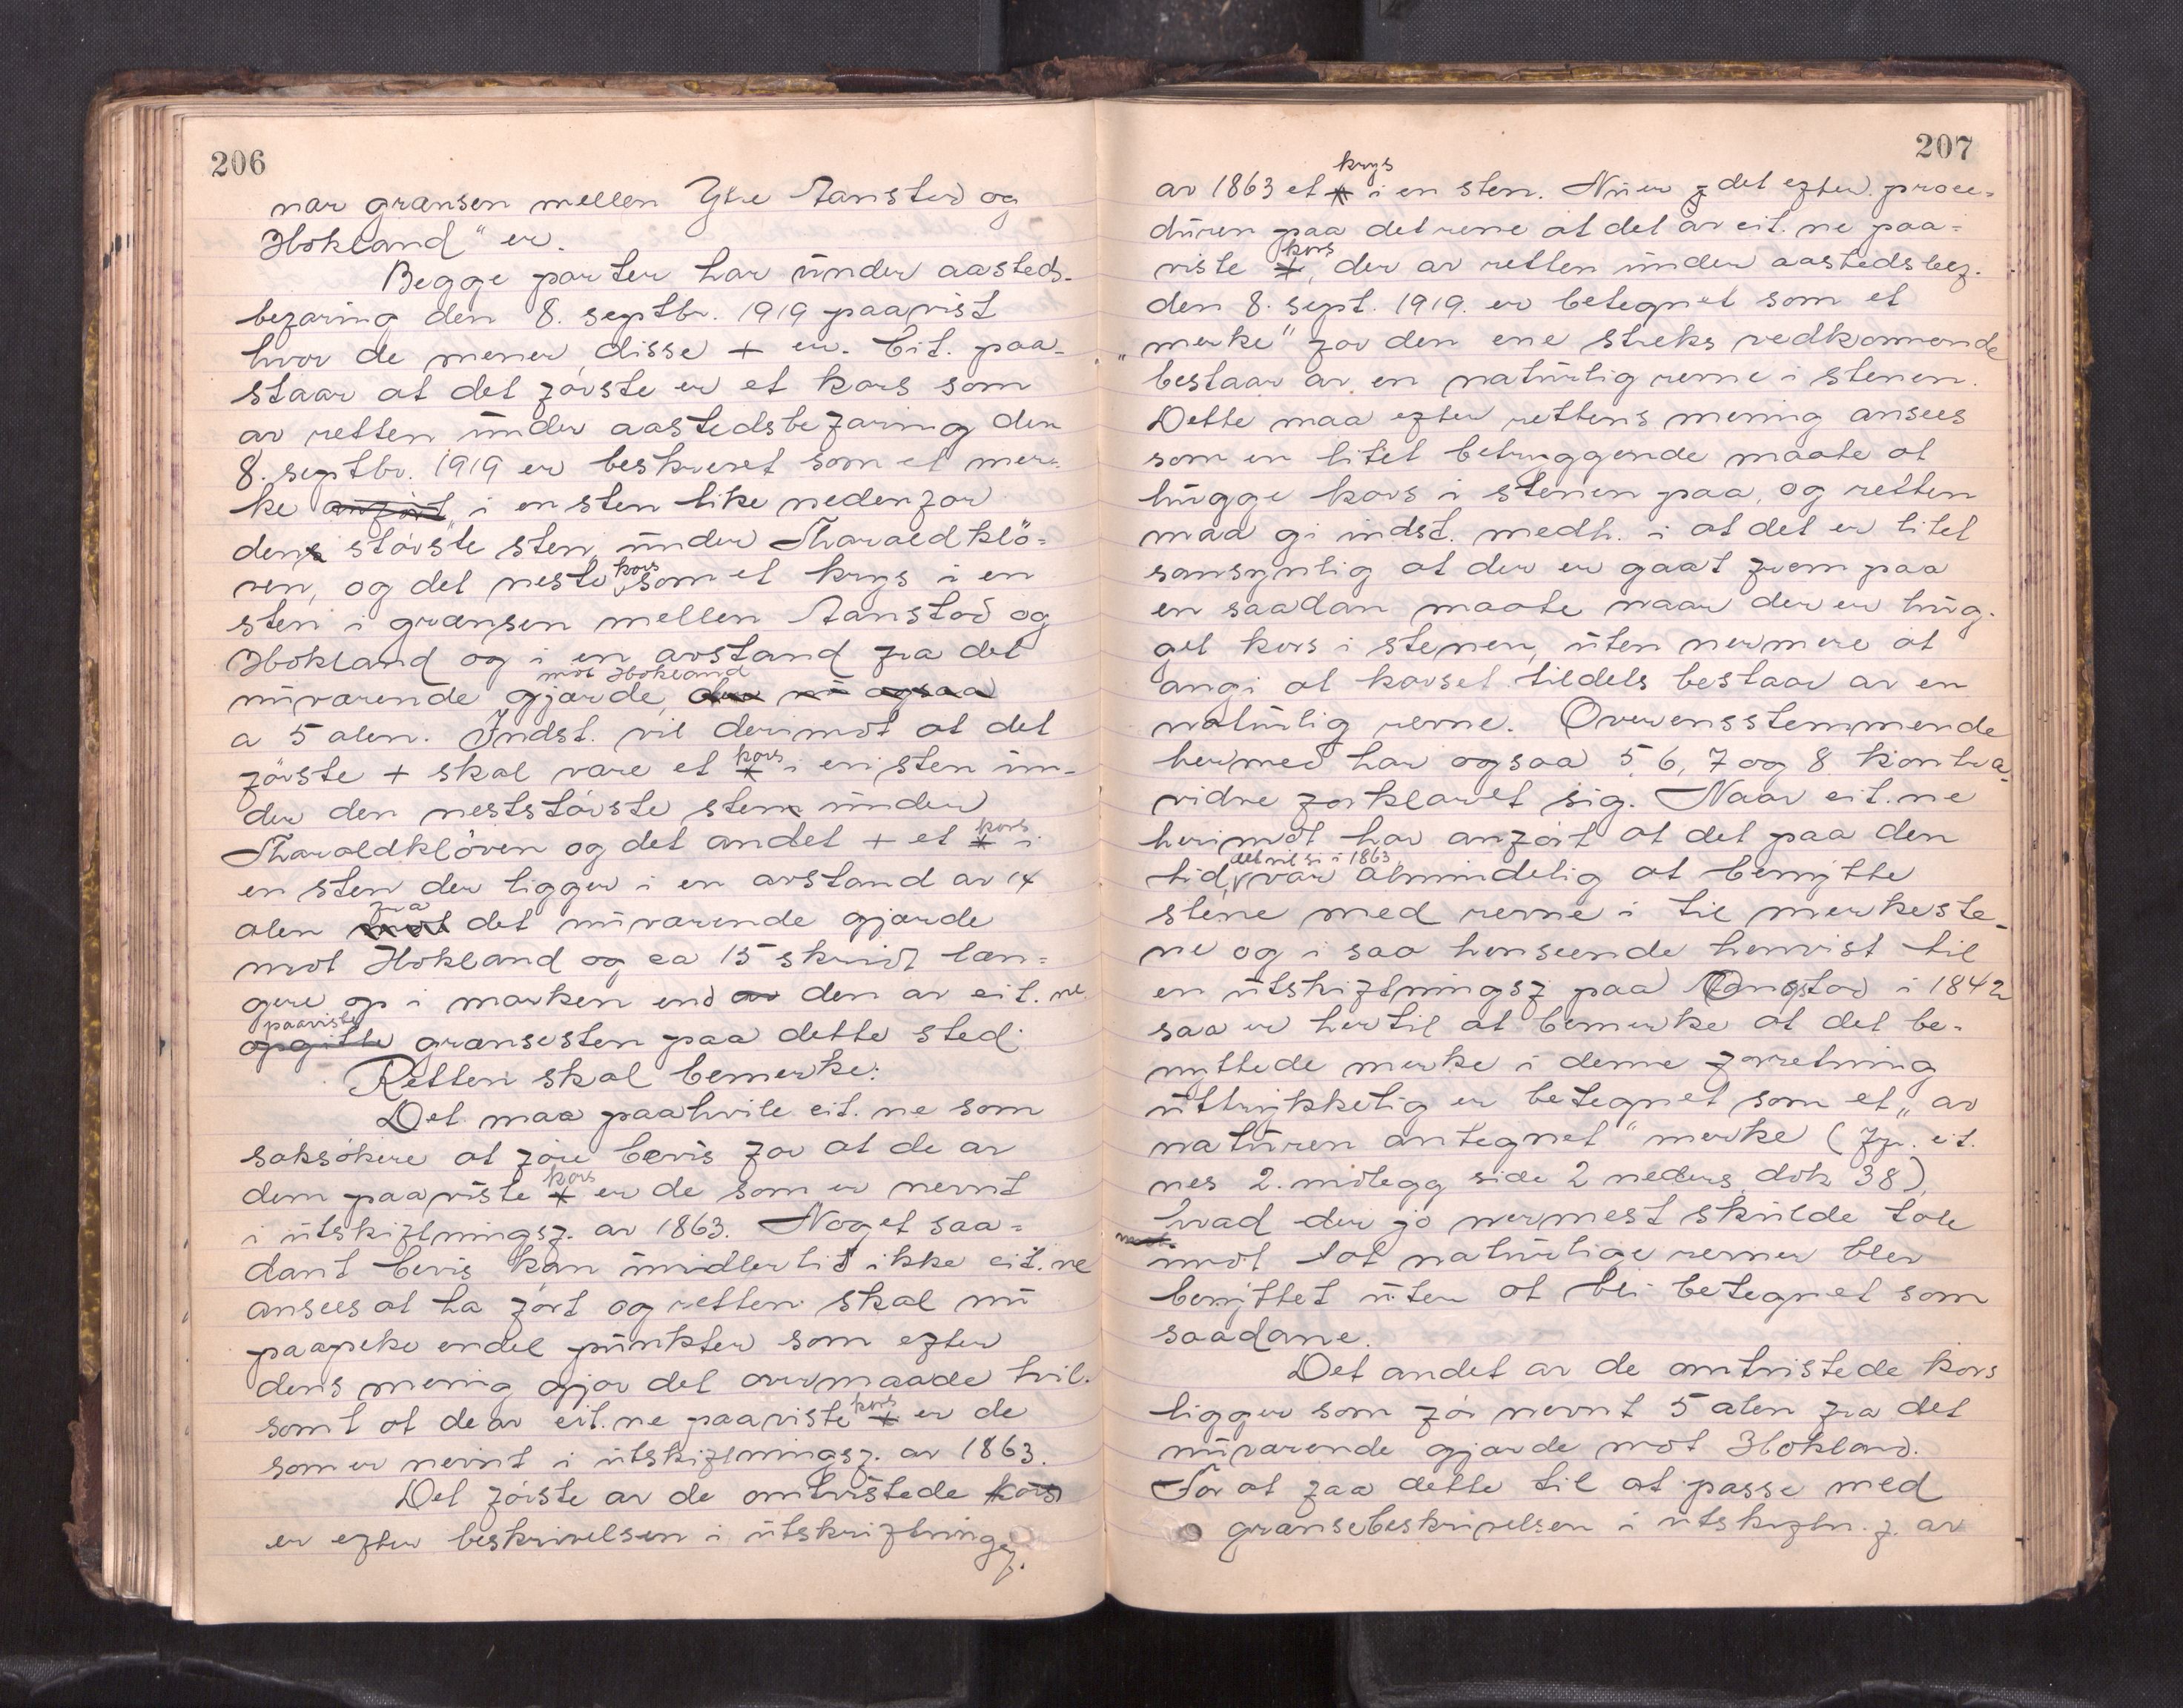 206
nar grænsen mellen Ytre Aanstad og
Hokland" er.
Begge parter har under aasteds-
befaring den 8. septbr. 1919 paavist
hvor de mener disse + er. Cit. paa-
staar at det første er et kors som
av retten under aastedsbefaring den
8. septbr. 1919 er beskrevet som et mer-
ke anført i en sten like nedenfor
den største sten, under Tharaldklö-
ven, og det neste kors som et krys i en
sten i grænsen mellen Aanstad og
Hokland og i en avstand fra det
nuværende gjærde mot Hokland, der nu ogsaa
a 5 alen. Indst. vil derimot at det
første + skal være et kors i en sten un-
der den neststørste sten under
Tharaldkløven og det andet + et kors i
en sten der ligger i en avstand av 14
alen mot fra det nuværende gjærde
mot Hokland og ca 15 skridt læn-
gere op i marken end av den av cit. ne
opgitte paaviste grænsesten paa dette sted.
Retten skal bemerke:
Det maa paahvile cit. ne som
saksøkere at føre bevis for at de av
dem paaviste kors er de som er nevnt
i utskiftningsf. av 1863. Noget saa-
dant bevis kan imidlertid ikke cit. ne
ansees at ha ført og retten skal nu
paapeke endel punkter som efter
dens mening gjør det overmaade tvil-
somt at de av cit. ne paaviste kors er de
som er nevnt i utskiftningsf. av 1863.
Det første av de omtvistede kors
er efter beskrivelsen i utskriftningsf.
207
av 1863 et krys i en sten. Nu er det efter proce-
duren paa det rene at det av cit. ne paa-
viste kors, der av retten under aastedsbef.
den 8. sept. 1919. er betegnet som et
"merke" for den ene streks vedkommende
bestaar av en naturlig revne i stenen.
Dette maa efter rettens mening ansees
som en litet betryggende maate at
hugge kors i stenen paa, og retten
maa gi indst. medh. i at det er litet
sansynlig at der er gaat frem paa
en saadan maate naar der er hug-
get kors i stenen, uten nermere at
angi at korset tildels bestaar av en
naturlig revne. Overensstemmende
hermed har ogsaa 5, 6, 7 og 8 kontra-
vidne forklaret sig. Naar cit. ne
herimot har anført at det paa den
tid, det vil si i 1863, var almindelig at benytte
stene med revne i til merkeste-
ne og i saa henseende henvist til
en utskiftningsf paa Aanstad i 1842
saa er hertil at bemerke at det be-
nyttede merke i denne forretning
uttrykkelig er betegnet som et "av
naturen antegnet" merke (Jfr. cit.
nes 2. indlegg side 2 neders, dok 38),
hvad der jo nermest skulde tale
mot at naturlige revner blev
benyttet uten at bli betegnet som
saadane.
Det andet av de omtvistede kors
ligger som før nevnt 5 alen fra det
nuværende gjærde mot Hokland.
For at faa dette til at passe med
grænsebeskrivelsen i utskiftn. f. av